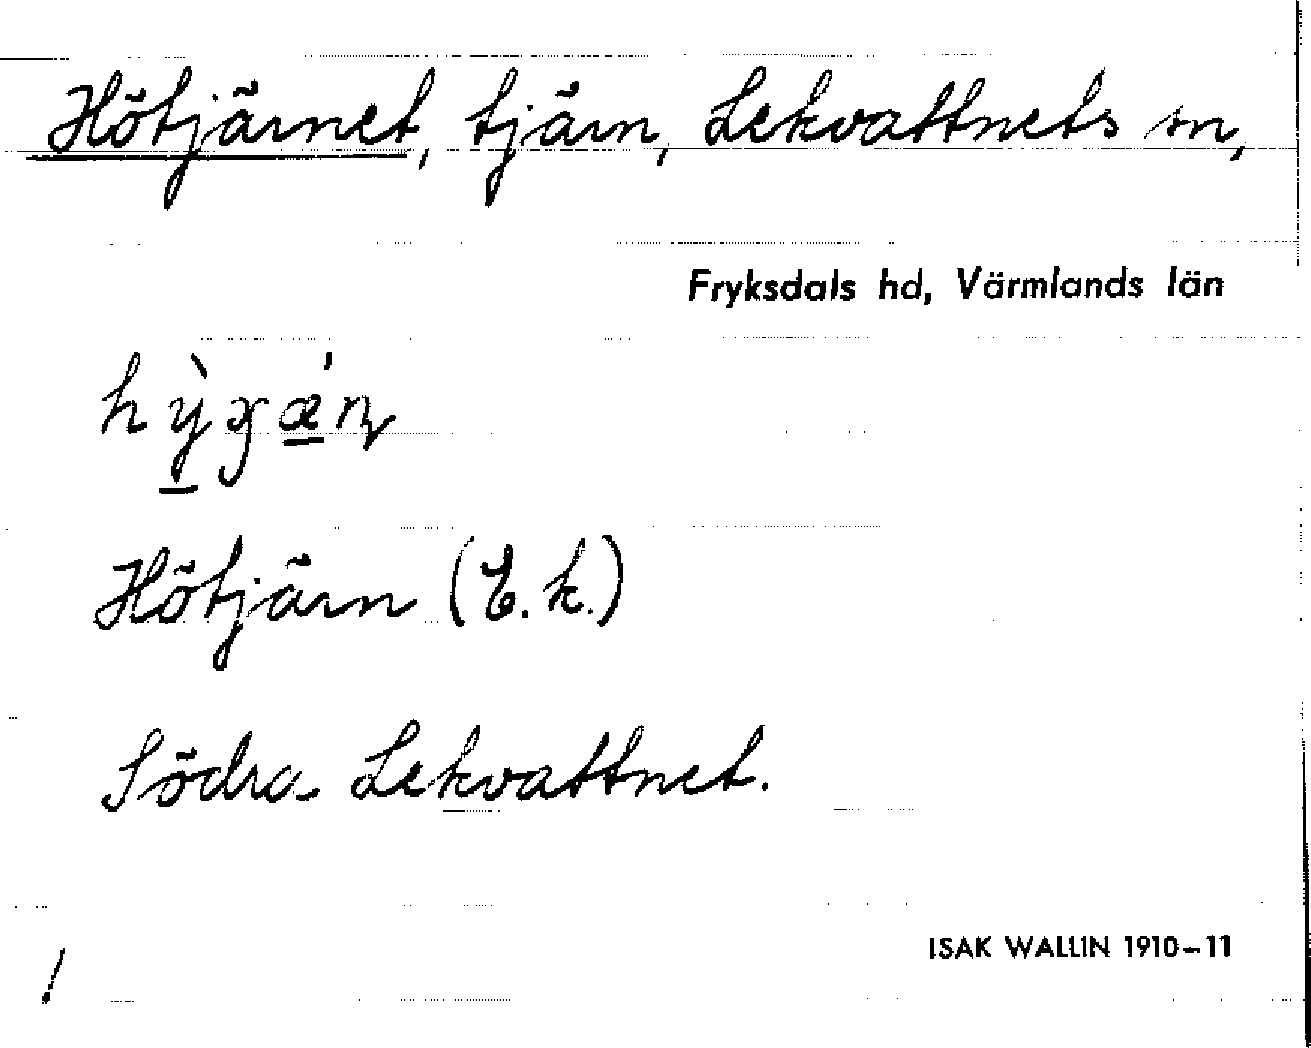 Hötjärnet, tjärn, Lekvattnets sn,
Fryksdals hd, Värmlands län
Hötjärn (E.k.)
Södra Lekvattnet.
ISAK WALLIN 1910-11
!